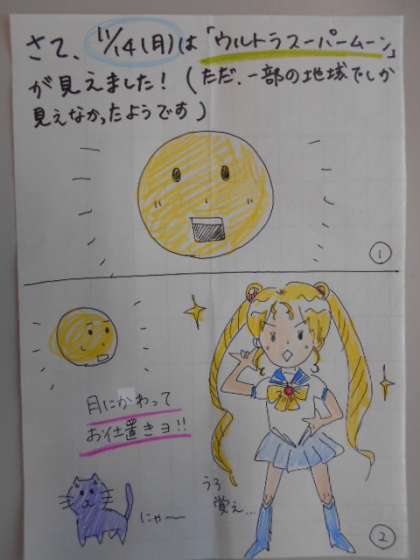 さて、11/14(月)は「ウルトラスーパームーン」
が見えました！(ただ、一部の地域でしか
見えなかったようです)
1
月にかわって
お仕置きヨ!!
にゃ〜
うろ
覚え…
2